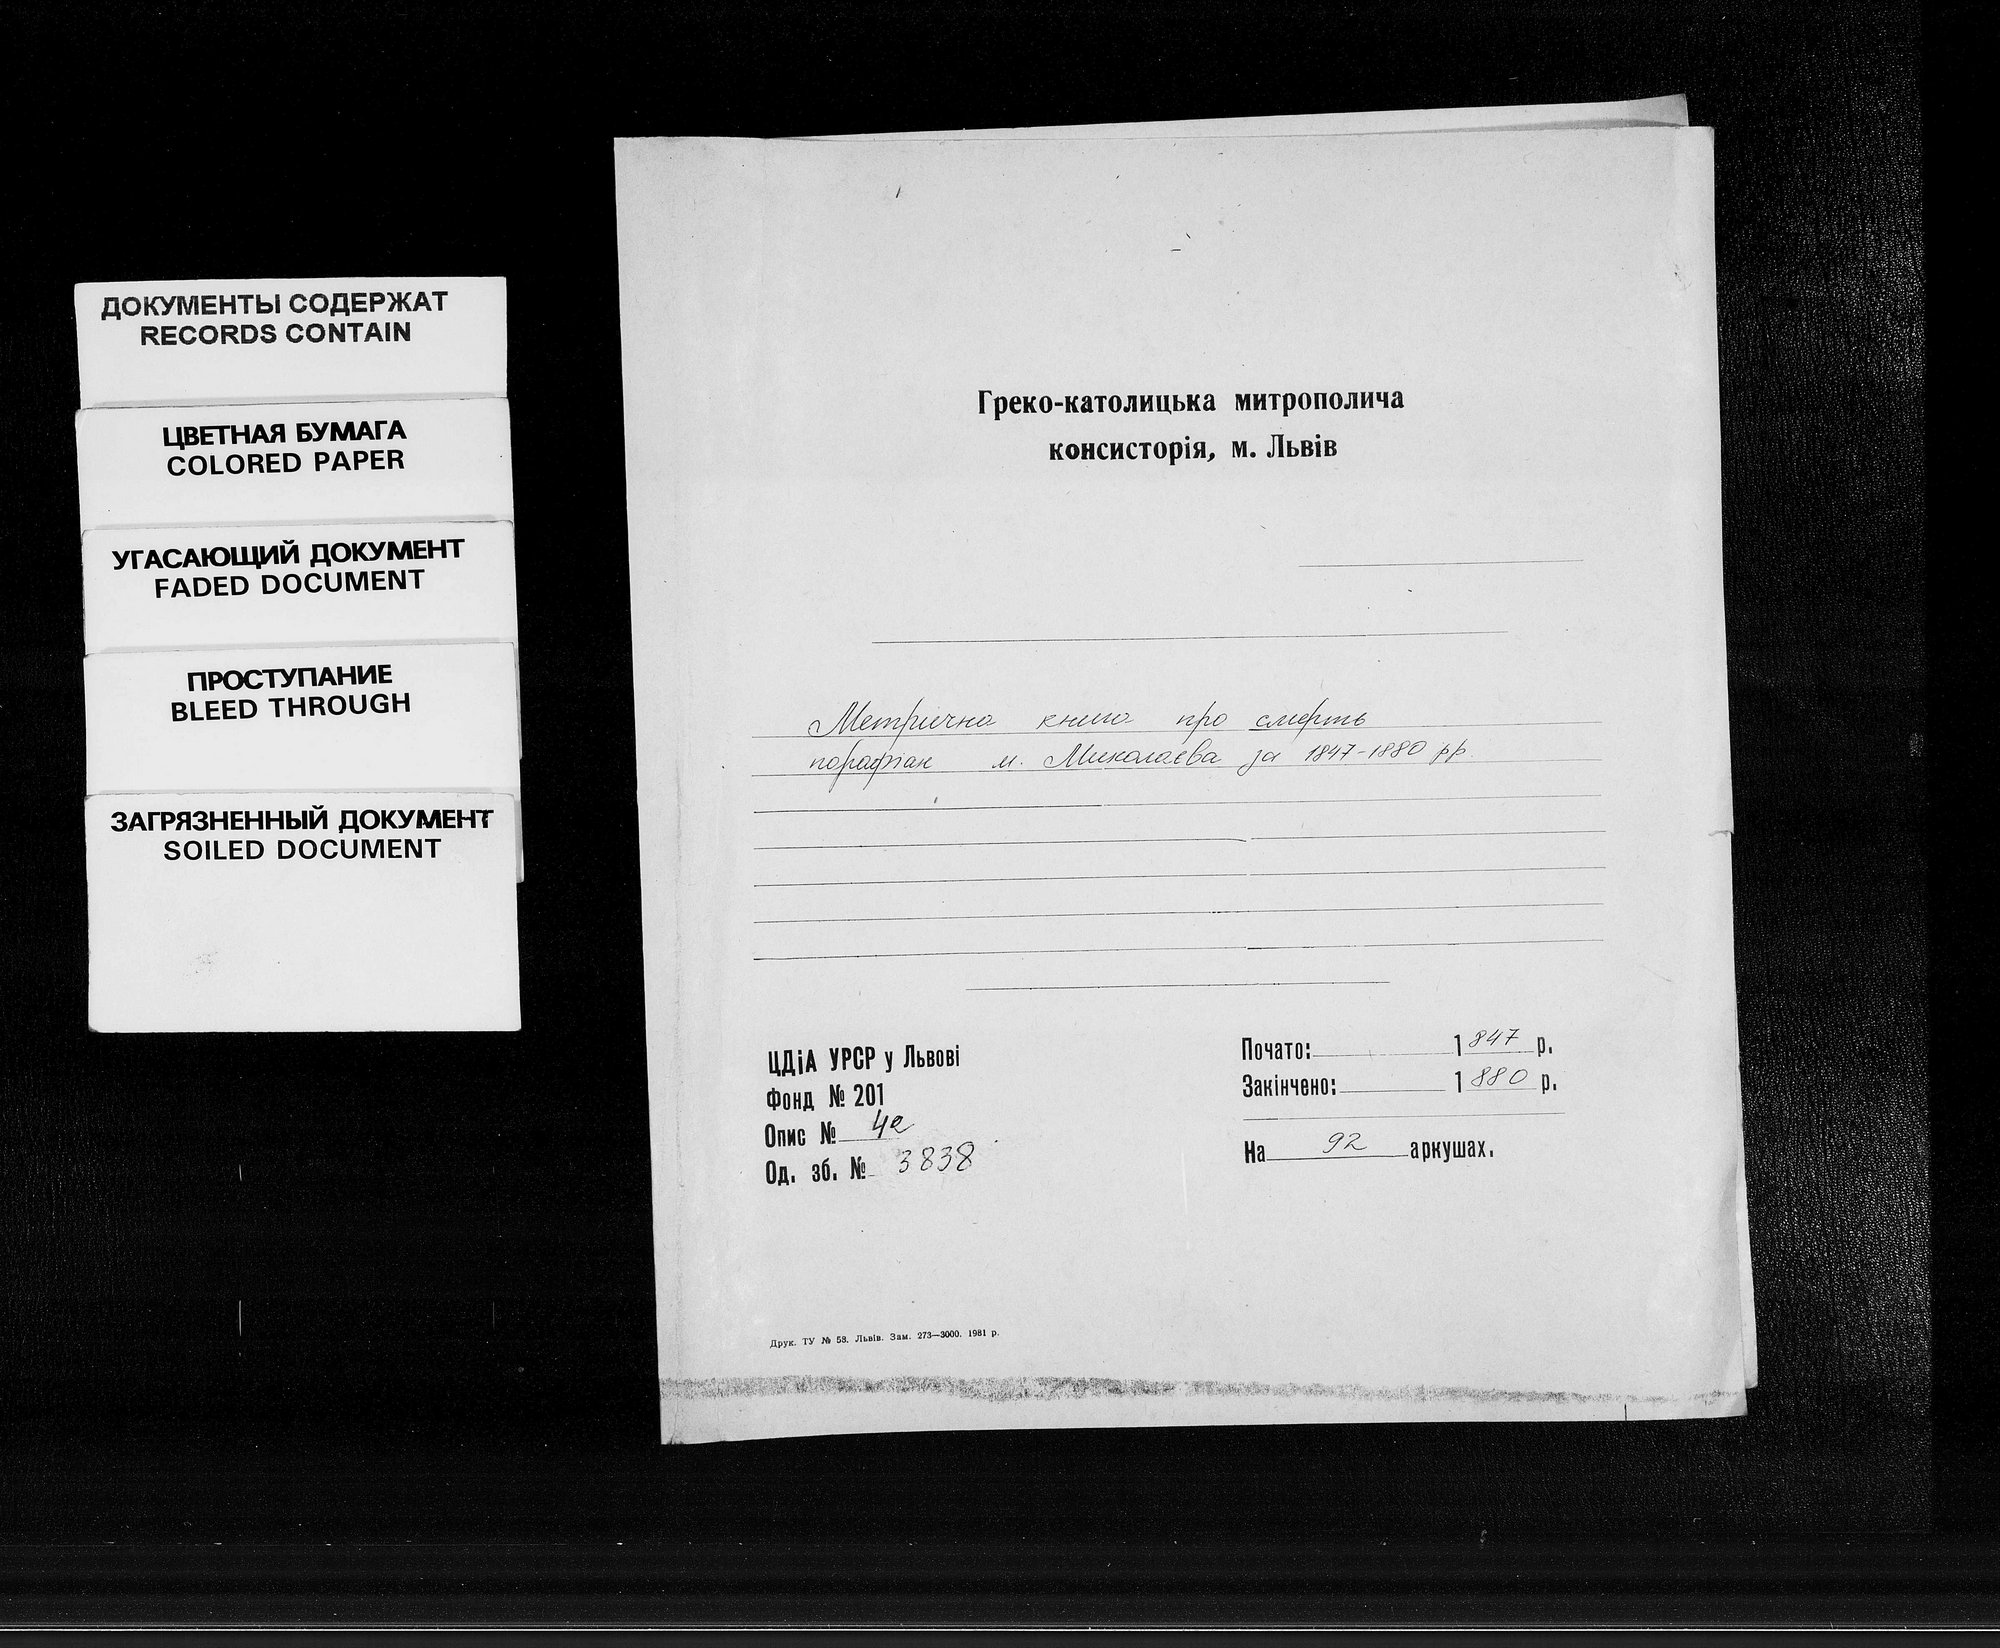 ДОКУМЕНТЫ СОДЕРЖАТ
RECORDS CONTAIN
ЦВЕТНАЯ БУМАГА
COLORED PAPER
УГАСАЮЩИЙ ДОКУМЕНТ
FADED DOCUMENT
ПРОСТУПАНИЕ
BLEED THROUGH
ЗАГРЯЗНЕННЫЙ ДОКУМЕНТ
SOILED DOCUMENT
Греко-католицька митрополича
консисторія, м. Львів
Метрична книга про смерть
парафіан м. Миколаєва за 1847-1880 рр.
ЦДіА УРСР у Львові
Фонд № 201
Опис № 4е
Од. зб. № 3838
Почато: 1847 р.
Закінчено: 1880 р.
На 92 аркушах.
Друк. ТУ № 58. Львів. Зам. 273—3000. 1981 р.